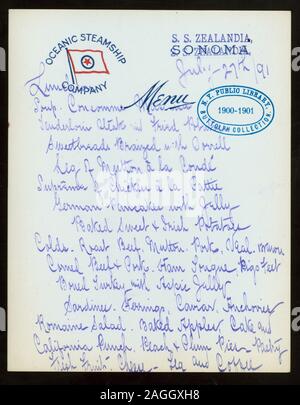 OCEANIC STEAMSHIP
COMPANY
S. S. ZEALANDIA,
SONOMA
July 27th / 91
Menu
N.Y. PUBLIC LIBRARY,
1900-1901
BUTTOLPH COLLECTION.
Lunch
Soup. Consomme
Tenderloin Steak with Fried
Sweetbreads Braized with Sorrell
Leg of Mutton a la
Supreme of Chicken a la
German Pancake with Jelly
Baked Sweet & Irish Potatoes
Colds. Roast Beef, Mutton, Pork, Veal,
Corned Beef & Pork. Ham Tongue Pigs Feet
Boned Turkey with Jelly
Sardines. Herrings, Caviar, Anchovies
Romaine Salad. Baked Apples Cake and
California Punch. Peach & Plum Pies. Pastry
Fresh Fruit. Cheese. Tea and Coffee
alamy
Image ID: 2AGGXH8
www.alamy.com